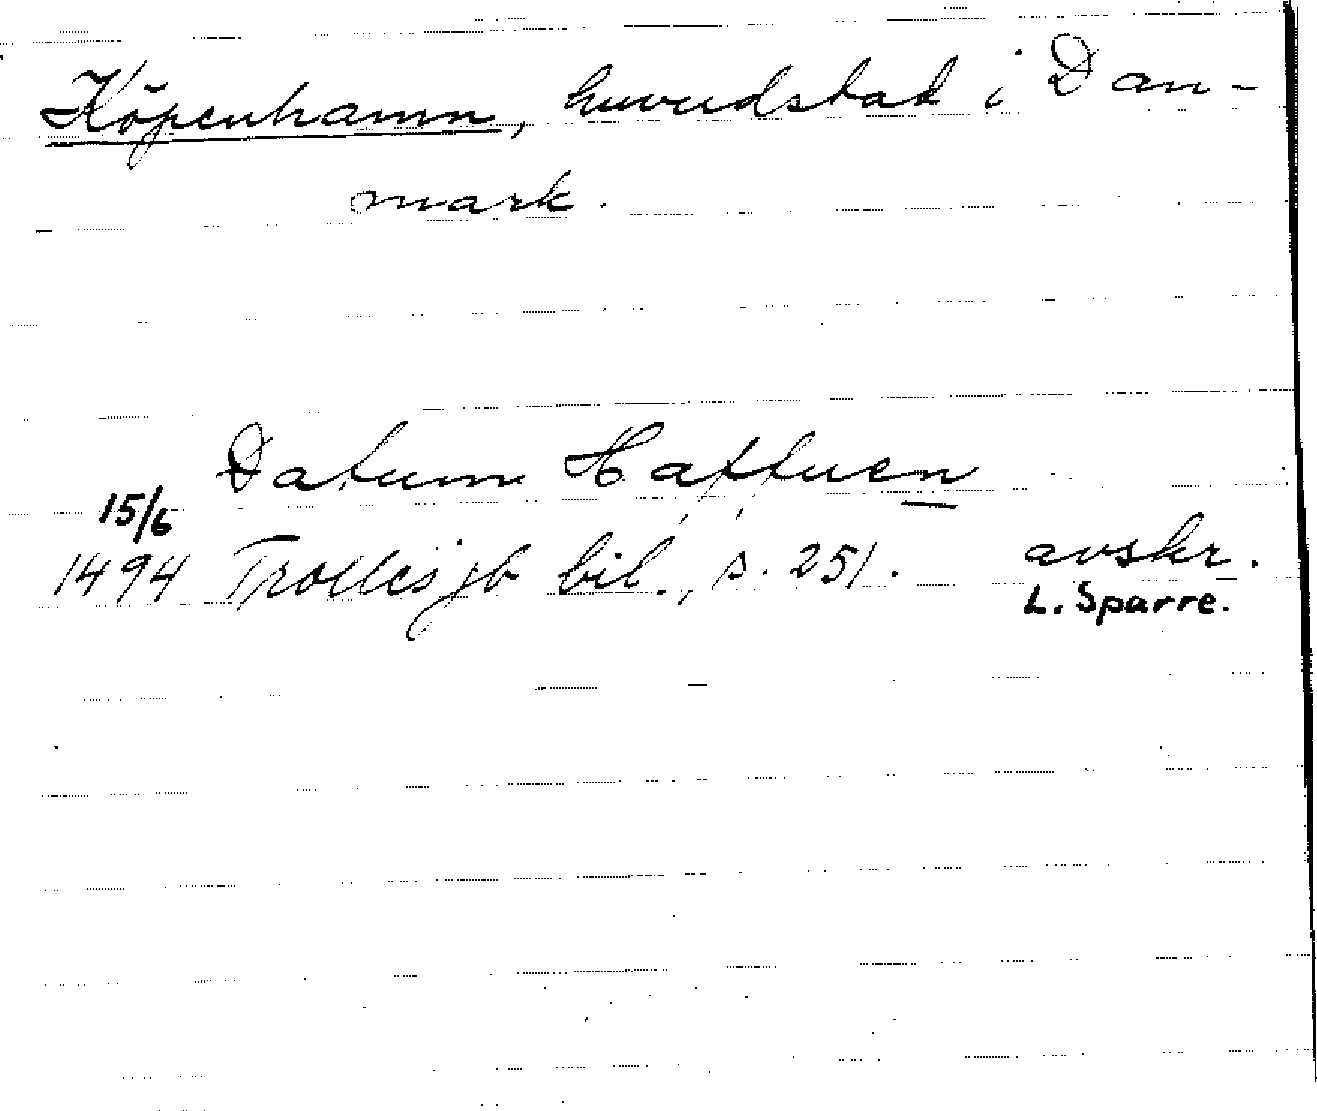 Köpenhamn, huvudstad i Dan-
mark.
Datum Haffuen
15/6
1494 Trolles jb bil., s. 251. avskr.
L. Sparre.